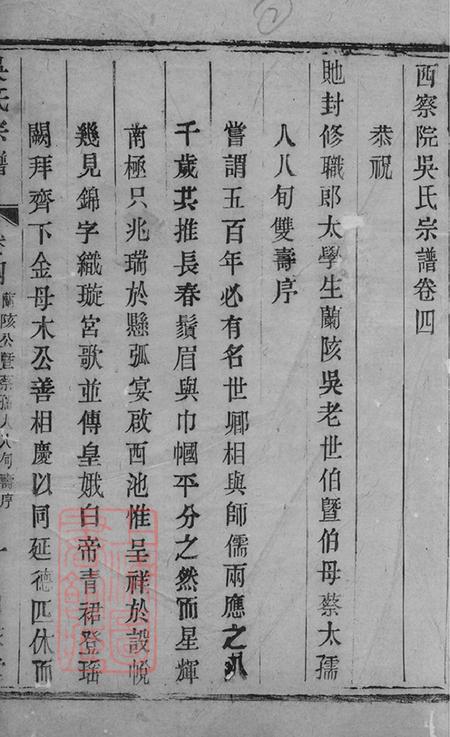 西察院吳氏宗譜卷四
恭祝
貤封修職郎太學生蘭陔吳老世伯暨伯母蔡太孺
人八旬雙壽序
嘗謂五百年必有名世卿相與師儒兩應之八
千歲共推長春鬚眉與巾幗平分之然而星輝
南極只兆瑞於懸弧宴啟西池惟呈祥於設帨
幾見錦字織璇宮歌並傳皇娥白帝青裙登瑤
闕拜齊下金母木公善相慶以同延德匹休而
吳氏宗譜
蘭陔公暨蔡孺人八旬壽序
一